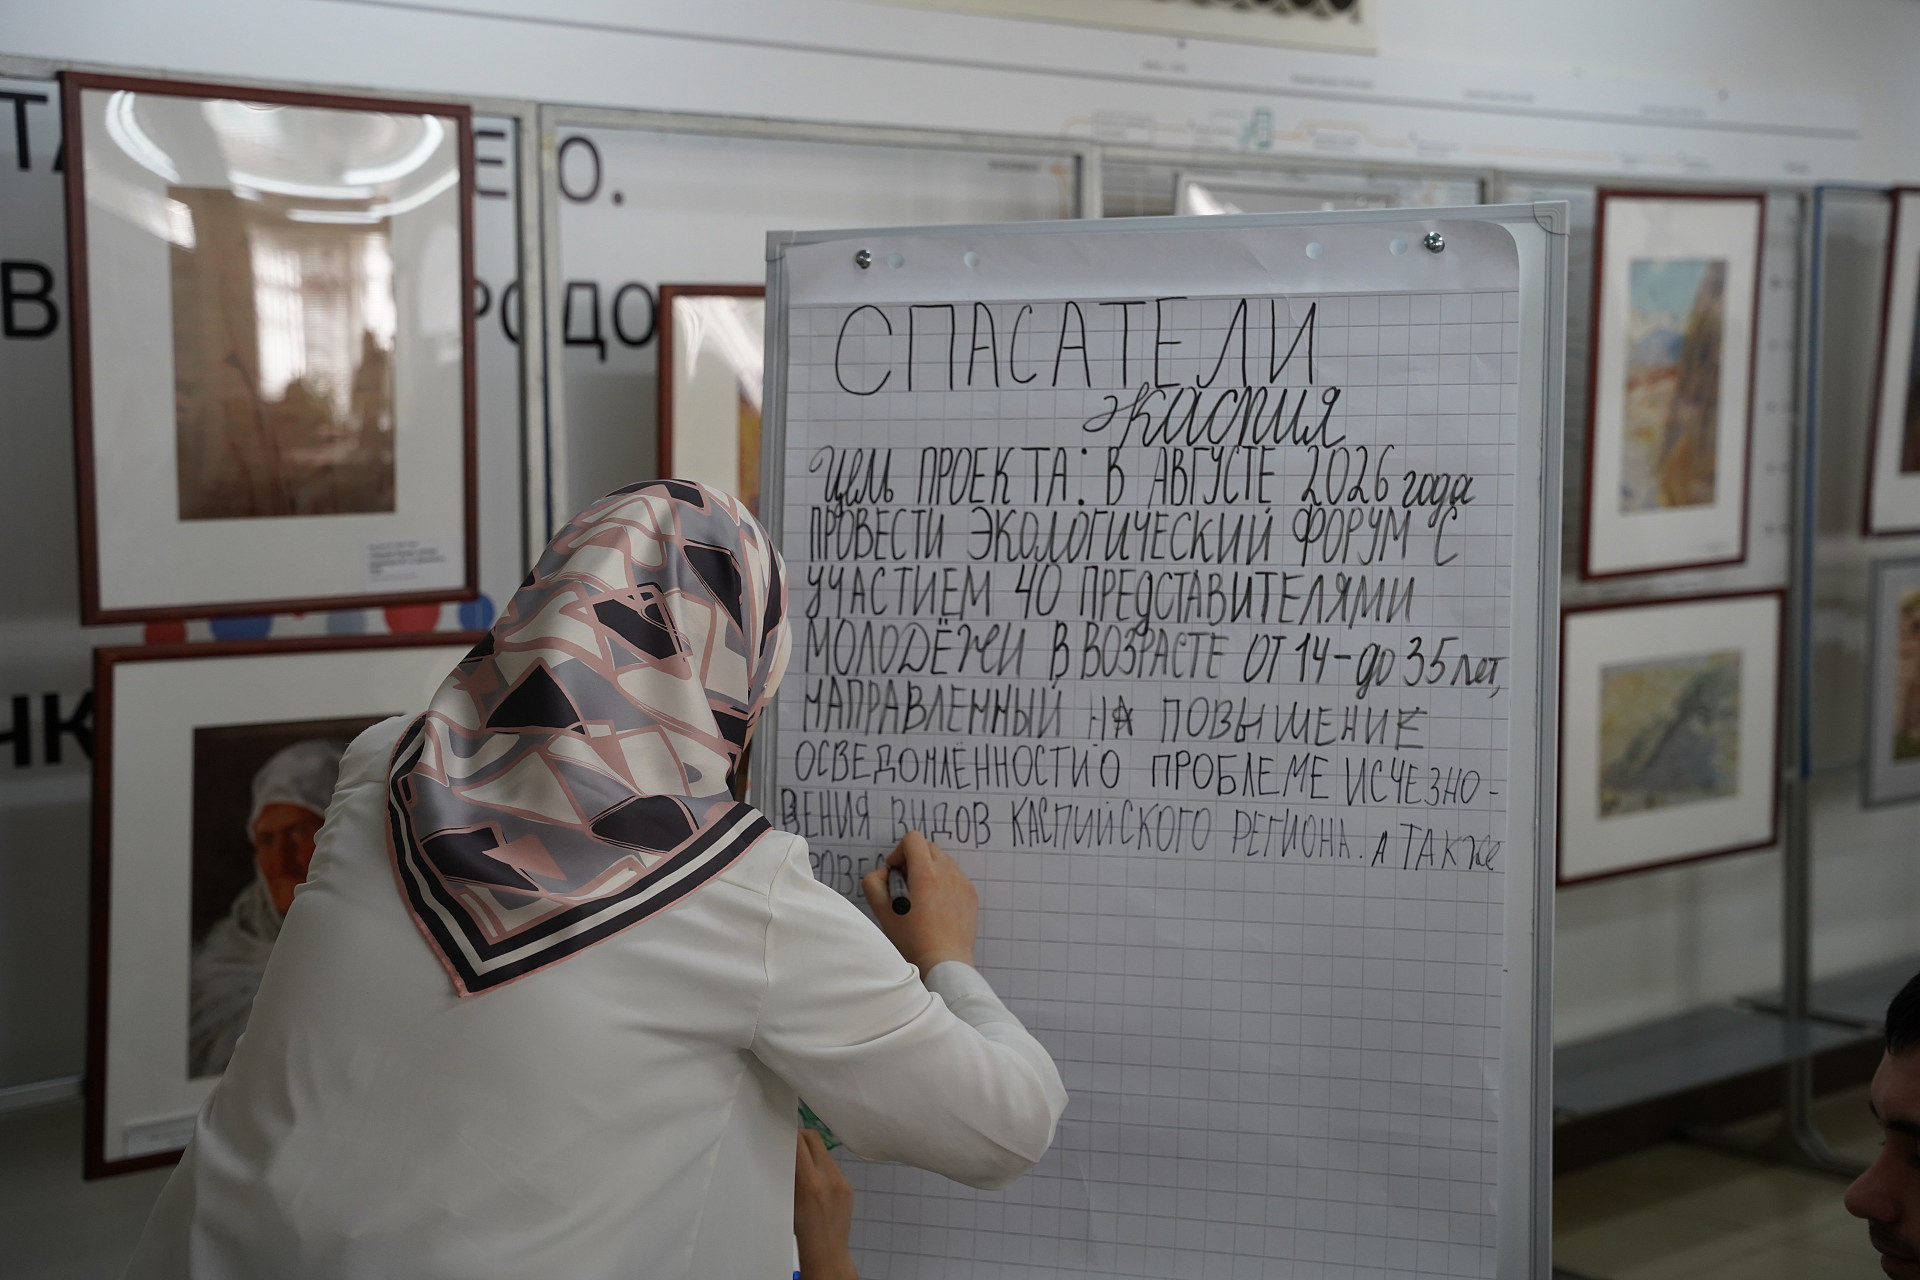 СПАСАТЕЛИ
экаспия
Цель ПРОЕКТА: В АВГУСТЕ 2026 года
ПРОВЕСТИ ЭКОЛОГИЧЕСКИЙ ФОРУМ С
УЧАСТИЕМ 40 ПРЕДСТАВИТЕЛЯМИ
МОЛОДЁЖИ В ВОЗРАСТЕ ОТ 14-до 35 лет,
НАПРАВЛЕННЫЙ НА ПОВЫШЕНИЕ
ОСВЕДОМЛЁННОСТИ О ПРОБЛЕМЕ ИСЧЕЗНО-
ВЕНИЯ ВИДОВ КАСПИЙСКОГО РЕГИОНА. А ТАКЖЕ